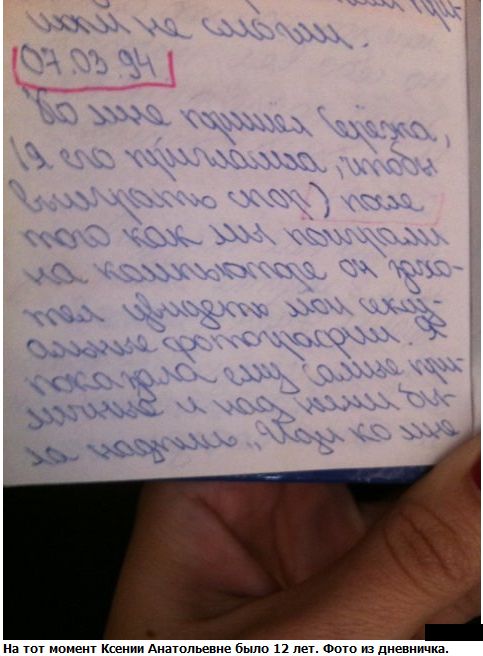 ики не смогли.
07.03.94
Ко мне пришёл Серёжа,
(я его пригласила, чтобы
выиграть спор) после
того как мы поиграли
на компьютере он захо-
тел увидеть мои сексу-
альные фотографии. Я
показала ему самые при-
личные и над ними бы-
ла надпись „Иди ко мне
На тот момент Ксении Анатольевне было 12 лет. Фото из дневничка.